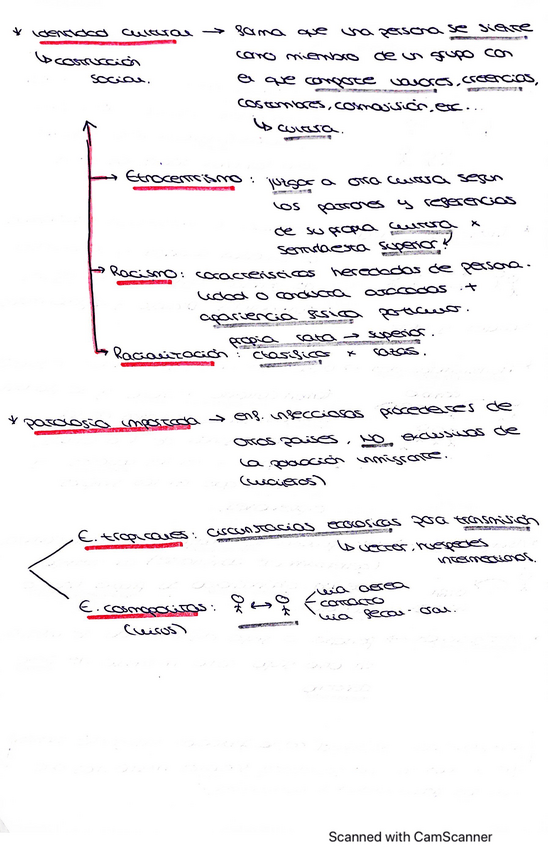 * identidad cultural → forma que una persona se siente
↳ construcción como miembro de un grupo con
social. el que comparte valores, creencias,
costumbres, cosmovisión, etc...
↳ cultura.
→ Etnocentrismo: juzgar a otra cultura según
los patrones y referencias
de su propia cultura x
sentida esta superior!
→ Racismo: características heredadas de persona-
lidad o conducta asociadas +
apariencia física particular.
propia raza → superior.
→ Racialización: clasificar x razas.
* patología importada → enf. infecciosas procedentes de
otros países, NO exclusivas de
la población inmigrante.
(viajeros)
E. tropicales: circunstancias ecológicas para transmisión
↳ vector, huéspedes
intermediarios.
E. cosmopolitas: ↔ vía aérea
contacto
(virus) vía fecal-oral.
Scanned with CamScanner